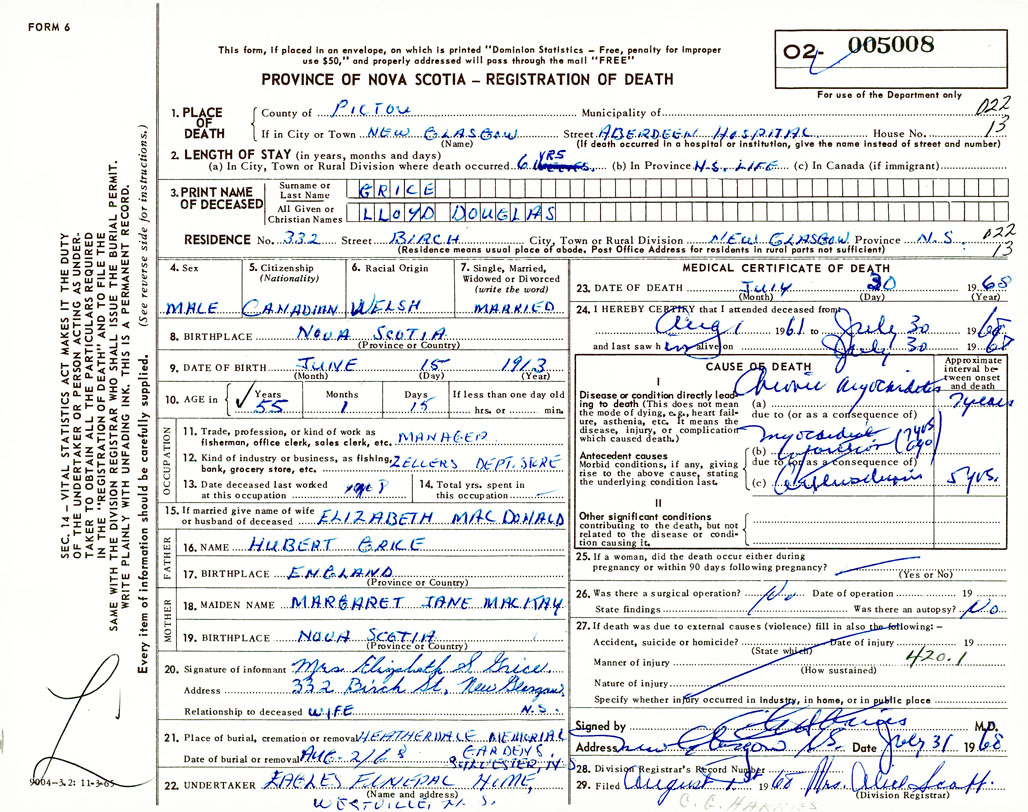 FORM 6
O2- 005008
This form, if placed in an envelope, on which is printed "Dominion Statistics – Free, penalty for improper
use $50," and properly addressed will pass through the mail "FREE"
PROVINCE OF NOVA SCOTIA – REGISTRATION OF DEATH
For use of the Department only
1. PLACE OF DEATH County of PICTOU Municipality of 022
If in City or Town NEW GLASGOW Street ABERDEEN HOSPITAL House No. 13
(Name) (If death occurred in a hospital or institution, give the name instead of street and number)
2. LENGTH OF STAY (in years, months and days)
(a) In City, Town or Rural Division where death occurred 6 YRS (b) In Province N.S. LIFE (c) In Canada (if immigrant)
3. PRINT NAME OF DECEASED Surname or Last Name GRICE
All Given or Christian Names LLOYD DOUGLAS
RESIDENCE No. 332 Street BIRCH City, Town or Rural Division NEW GLASGOW Province N.S. 022
(Residence means usual place of abode. Post Office Address for residents in rural parts not sufficient) 13
4. Sex 5. Citizenship (Nationality) 6. Racial Origin 7. Single, Married, Widowed or Divorced (write the word)
MALE CANADIAN WELSH MARRIED
8. BIRTHPLACE NOVA SCOTIA
(Province or Country)
9. DATE OF BIRTH JUNE 15 1913
(Month) (Day) (Year)
10. AGE in Years Months Days If less than one day old
55 1 15 hrs. or min.
OCCUPATION
11. Trade, profession, or kind of work as
fisherman, office clerk, sales clerk, etc. MANAGER
12. Kind of industry or business, as fishing,
bank, grocery store, etc. ZELLERS DEPT. STORE
13. Date deceased last worked
at this occupation
14. Total yrs. spent in
this occupation
15. If married give name of wife
or husband of deceased ELIZABETH MACDONALD
FATHER
16. NAME HUBERT GRICE
17. BIRTHPLACE ENGLAND
(Province or Country)
MOTHER
18. MAIDEN NAME MARGARET JANE MACKAY
19. BIRTHPLACE NOVA SCOTIA
(Province or Country)
20. Signature of informant Mrs. Elizabeth S. Grice
Address 332 Birch St, New Glasgow,
Relationship to deceased WIFE N.S.
21. Place of burial, cremation or removal HEATHERDALE MEMORIAL
GARDENS
Date of burial or removal AUG. 2/68 SYLVESTER, N.S
22. UNDERTAKER EAGLES FUNERAL HOME,
(Name and address)
WESTVILLE, N.S.
MEDICAL CERTIFICATE OF DEATH
23. DATE OF DEATH JULY 30 1968
(Month) (Day) (Year)
24. I HEREBY CERTIFY that I attended deceased from
Aug 1 1961 to July 30 1968
and last saw him alive on July 30 1968
CAUSE OF DEATH Approximate interval between onset and death
I
Disease or condition directly leading to death (This does not mean the mode of dying, e.g., heart failure, asthenia, etc. It means the disease, injury, or complication which caused death.)
(a) Chronic myocarditis 7 years
due to (or as a consequence of)
Antecedent causes
Morbid conditions, if any, giving rise to the above cause, stating the underlying condition last.
(b) myocardial infarction (7 yrs ago)
due to (or as a consequence of)
(c) 5 yrs.
II
Other significant conditions
contributing to the death, but not
related to the disease or condition causing it.
25. If a woman, did the death occur either during
pregnancy or within 90 days following pregnancy?
(Yes or No)
26. Was there a surgical operation? No Date of operation 19
State findings Was there an autopsy? No
27. If death was due to external causes (violence) fill in also the following: –
Accident, suicide or homicide? Date of injury 19
(State which)
Manner of injury 420.1
(How sustained)
Nature of injury
Specify whether injury occurred in Industry, in home, or in public place
Signed by M.D.
Address New Glasgow N.S. Date July 31 1968
28. Division Registrar's Record Number
29. Filed August 1968 Mrs. Alice Scott
(Division Registrar)
C. E. HARRIES
SEC. 14 – VITAL STATISTICS ACT MAKES IT THE DUTY
OF THE UNDERTAKER OR PERSON ACTING AS UNDER-
TAKER TO OBTAIN ALL THE PARTICULARS REQUIRED
IN THE "REGISTRATION OF DEATH" AND TO FILE THE
SAME WITH THE DIVISION REGISTRAR WHO SHALL ISSUE THE BURIAL PERMIT.
WRITE PLAINLY WITH UNFADING INK. THIS IS A PERMANENT RECORD.
Every item of information should be carefully supplied. (See reverse side for instructions.)
9004-3.2: 11-3-65